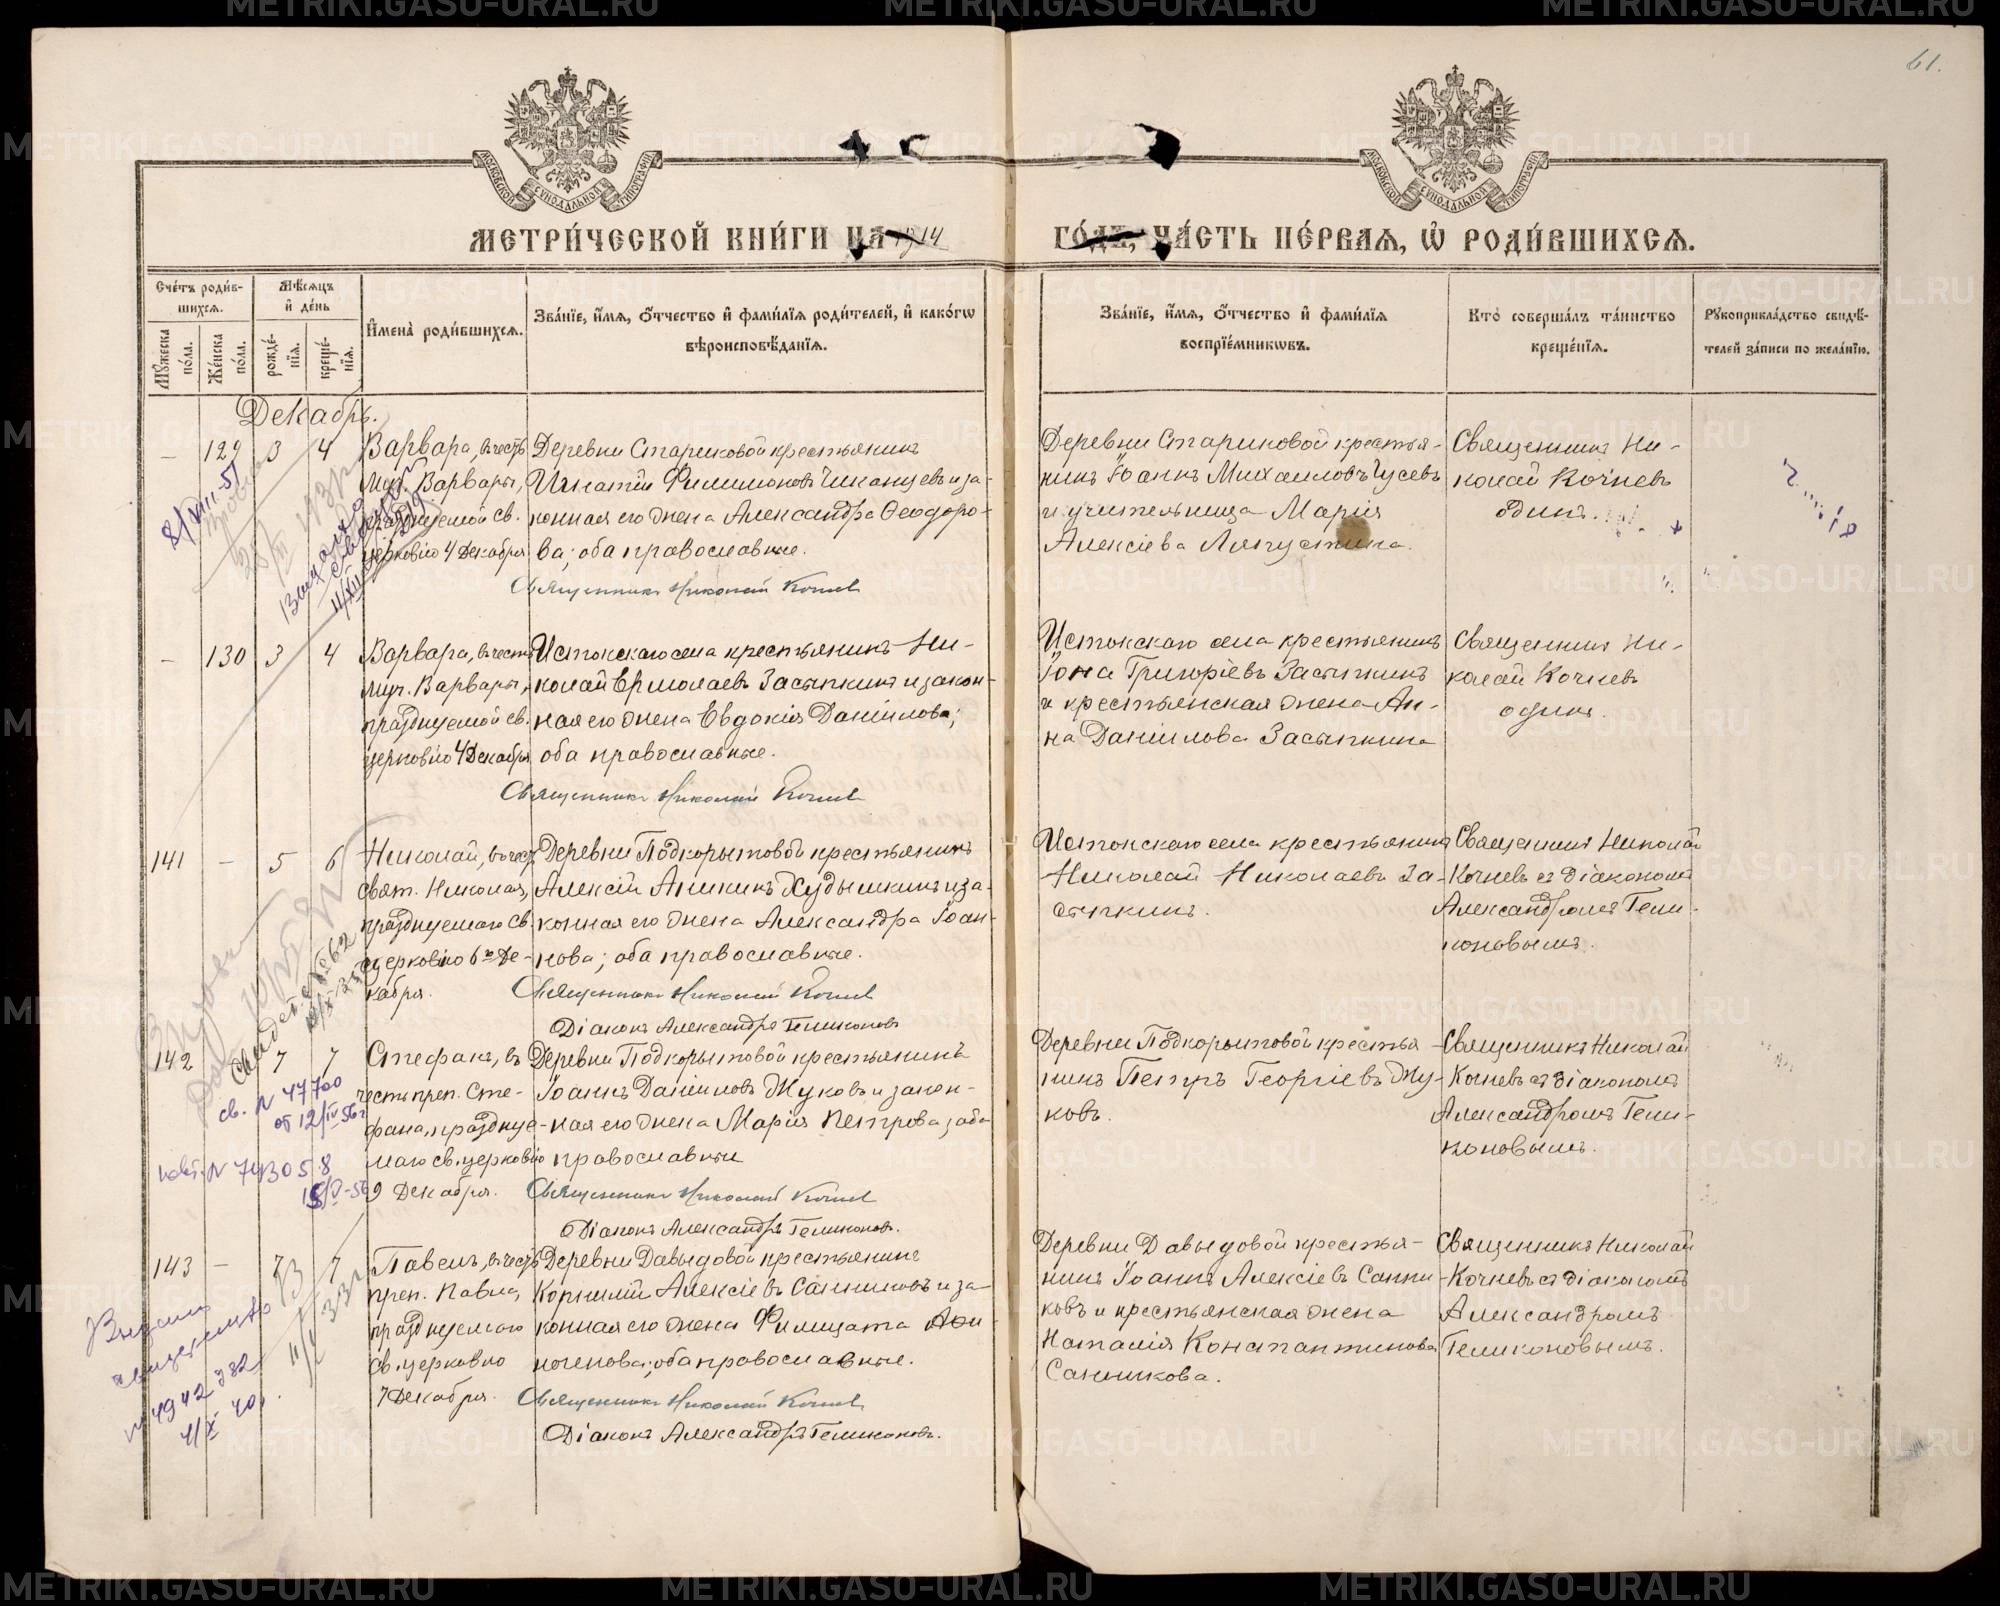 61.
МЕТРИ́ЧЕСКОЙ КНИ́ГИ НА 1914
ГО́ДЪ, ЧА́СТЬ ПЕ́РВАЯ, Ѡ҆ РОДИ́ВШИХСЯ.
Сче́тъ роди́в-
шихся.
Мѣ́сяцъ
и҆ де́нь
Мꙋ́жеска
по́ла.
Же́нска
по́ла.
рожде́-
нїя.
креще́-
нїя.
И҆мена̀ роди́вшихся.
Зва́нїе, и҆́мя, ѻ҆́тчество и҆ фами́лїя роди́телей, и҆ како́гѡ
вѣроисповѣ́данїя.
Зва́нїе, и҆́мя, ѻ҆́тчество и҆ фами́лїя
воспрїе́мникѡвъ.
Кто̀ соверша́лъ та́инство
креще́нїя.
Рꙋкоприкла́дство свидѣ́-
телей за́писи по жела́нїю.
Декабрь.
— 129 3 4
Варвара, въ честь
муч. Варвары,
празднуемой св.
церковію 4 Декабря
Деревни Стариковой крестьянинъ
Игнатій Филимоновъ Чиканцевъ и за-
конная его жена Александра Ѳеодоро-
ва; оба православные.
Священникъ Николай Кочнев
Деревни Стариковой крестья-
нинъ Іоаннъ Михаиловъ Гусевъ
и учительница Марія
Алексіева Ляпустина.
Священникъ Ни-
колай Кочневъ
одинъ.
— 130 3 4
Варвара, въ честь
муч. Варвары,
празднуемой св.
церковію 4 Декабря
Истокскаго села крестьянинъ Ни-
колай Ермолаевъ Засыпкинъ и закон-
ная его жена Евдокія Даніилова;
оба православные.
Священникъ Николай Кочнев
Истокскаго села крестьянинъ
Іона Григоріевъ Засыпкинъ
и крестьянская жена Ан-
на Даніилова Засыпкина
Священникъ Ни-
колай Кочневъ
одинъ.
141 — 5 6
Николай, въ честь
свят. Николая,
празднуемаго св.
церковію 6го Де-
кабря.
Деревни Подкорытовой крестьянинъ
Алексій Аникинъ Худышкинъ и за-
конная его жена Александра Іоан-
нова; оба православные.
Священникъ Николай Кочнев
Діаконъ Александръ Геликоновъ
Истокскаго села крестьянинъ
Николай Николаевъ За-
сыпкинъ.
Священникъ Николай
Кочневъ съ діакономъ
Александромъ Гели-
коновымъ.
142 7 7
Стефанъ, въ
честь преп. Сте-
фана, празднуе-
маго св. церковію
9 Декабря.
Деревни Подкорытовой крестьянинъ
Іоаннъ Даніиловъ Жуковъ и закон-
ная его жена Марія Петрова; оба
православные
Священникъ Николай Кочнев
Діаконъ Александръ Геликоновъ.
Деревни Подкорытовой крестья-
нинъ Петръ Георгіевъ Жу-
ковъ.
Священникъ Николай
Кочневъ съ діакономъ
Александромъ Гели-
коновымъ.
св. N 47700
от 12/IV 56 г
143 — 7 7
Павелъ, въ честь
преп. Павла,
празднуемаго
св. церковію
7 Декабря.
Деревни Давыдовой крестьянинъ
Корнилій Алексіевъ Санниковъ и за-
конная его жена Филицата Аѳи-
ногенова; оба православные.
Священникъ Николай Кочнев
Діаконъ Александръ Геликоновъ.
Деревни Давыдовой крестья-
нинъ Іоаннъ Алексіевъ Санни-
ковъ и крестьянская жена
Наталія Константинова
Санникова.
Священникъ Николай
Кочневъ съ діакономъ
Александромъ
Геликоновымъ.
Выдано
свидетельство
N 4942 382
4/X 40.
METRIKI.GASO-URAL.RU